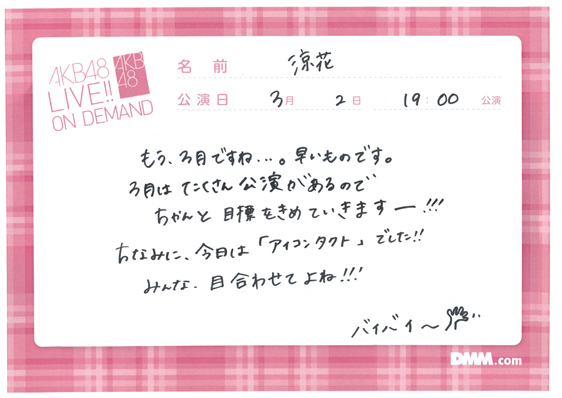 AKB48
LIVE!!
ON DEMAND
AKB
48
名前 涼花
公演日 3月 2日 19:00 公演
もう、3月ですね…。早いものです。
3月はたくさん公演があるので
ちゃんと目標をきめていきますー!!!
ちなみに、今日は「アイコンタクト」でした!!
みんな、目合わせてよね!!!
バイバイ~
DMM.com